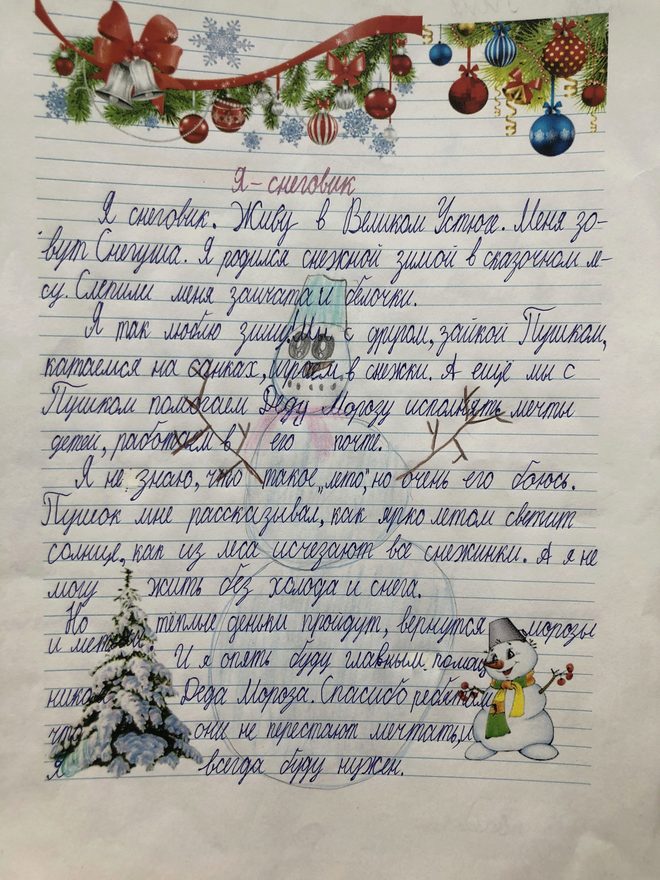 Я - снеговик
Я снеговик. Живу в Великом Устюге. Меня зо-
вут Снегуша. Я родился снежной зимой в сказочном ле-
су. Слепили меня зайчата и белочки.
Я так люблю зиму. Мы с другом, зайкой Пушком,
катаемся на санках, играем в снежки. А ещё мы с
Пушком помогаем Деду Морозу исполнять мечты
детей, работаем в его почте.
Я не знаю, что такое „лето", но очень его боюсь.
Пушок мне рассказывал, как ярко летом светит
солнце, как из леса исчезают все снежинки. А я не
могу жить без холода и снега.
Но тёплые деньки пройдут, вернутся морозы
и метели. И я опять буду главным помощ
ником Деда Мороза. Спасибо ребятам
что они не перестают мечтать, и
я всегда буду нужен.